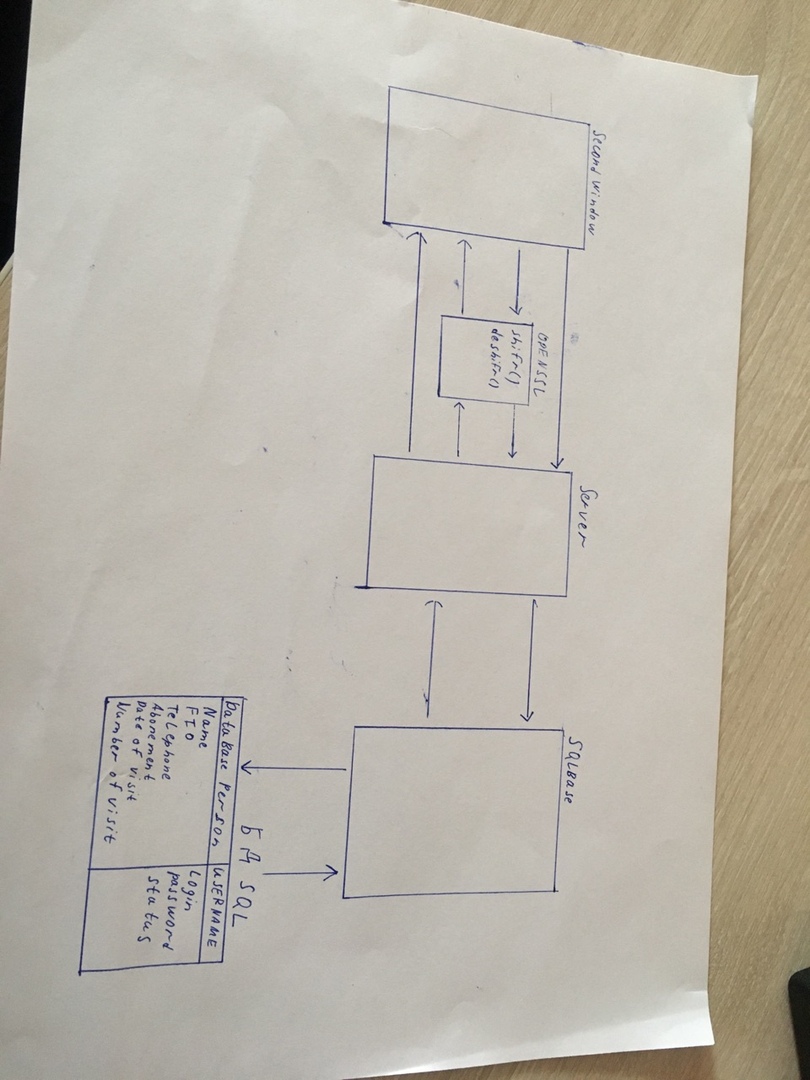 Second window
OPENSSL
shifr()
deshifr()
Server
SQLBase
БД SQL
DataBase Person
Name
FIO
Telephone
Abonement
Date of visit
Number of visit
USERNAME
Login
password
status